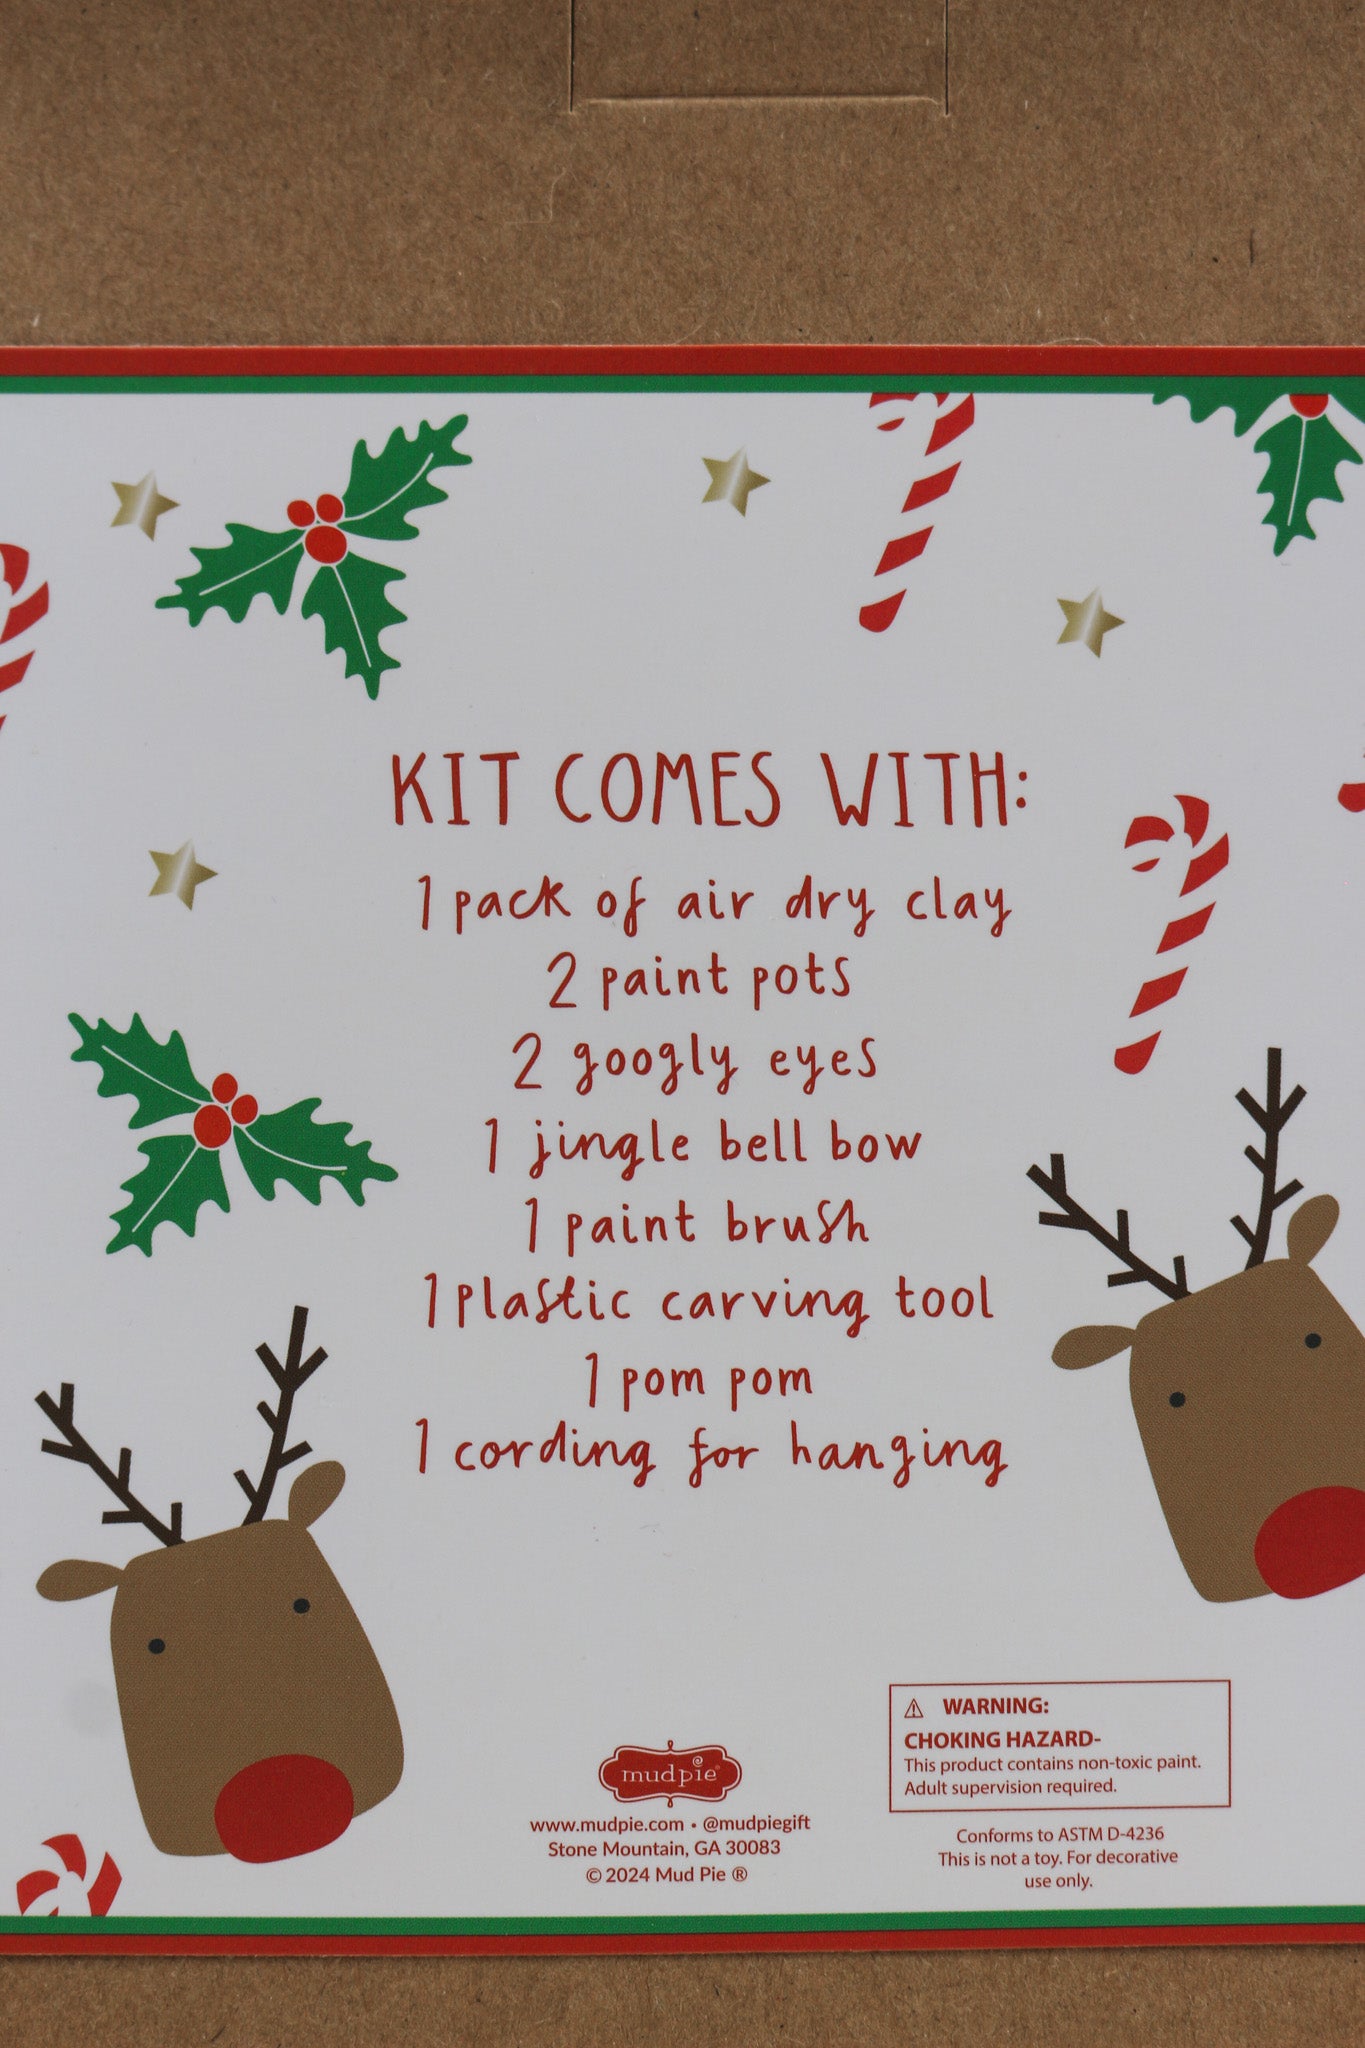 KIT COMES WITH:
1 pack of air dry clay
2 paint pots
2 googly eyes
1 jingle bell bow
1 paint brush
1 plastic carving tool
1 pom pom
1 cording for hanging
mudpie®
www.mudpie.com • @mudpiegift
Stone Mountain, GA 30083
© 2024 Mud Pie ®
⚠ WARNING:
CHOKING HAZARD-
This product contains non-toxic paint.
Adult supervision required.
Conforms to ASTM D-4236
This is not a toy. For decorative
use only.